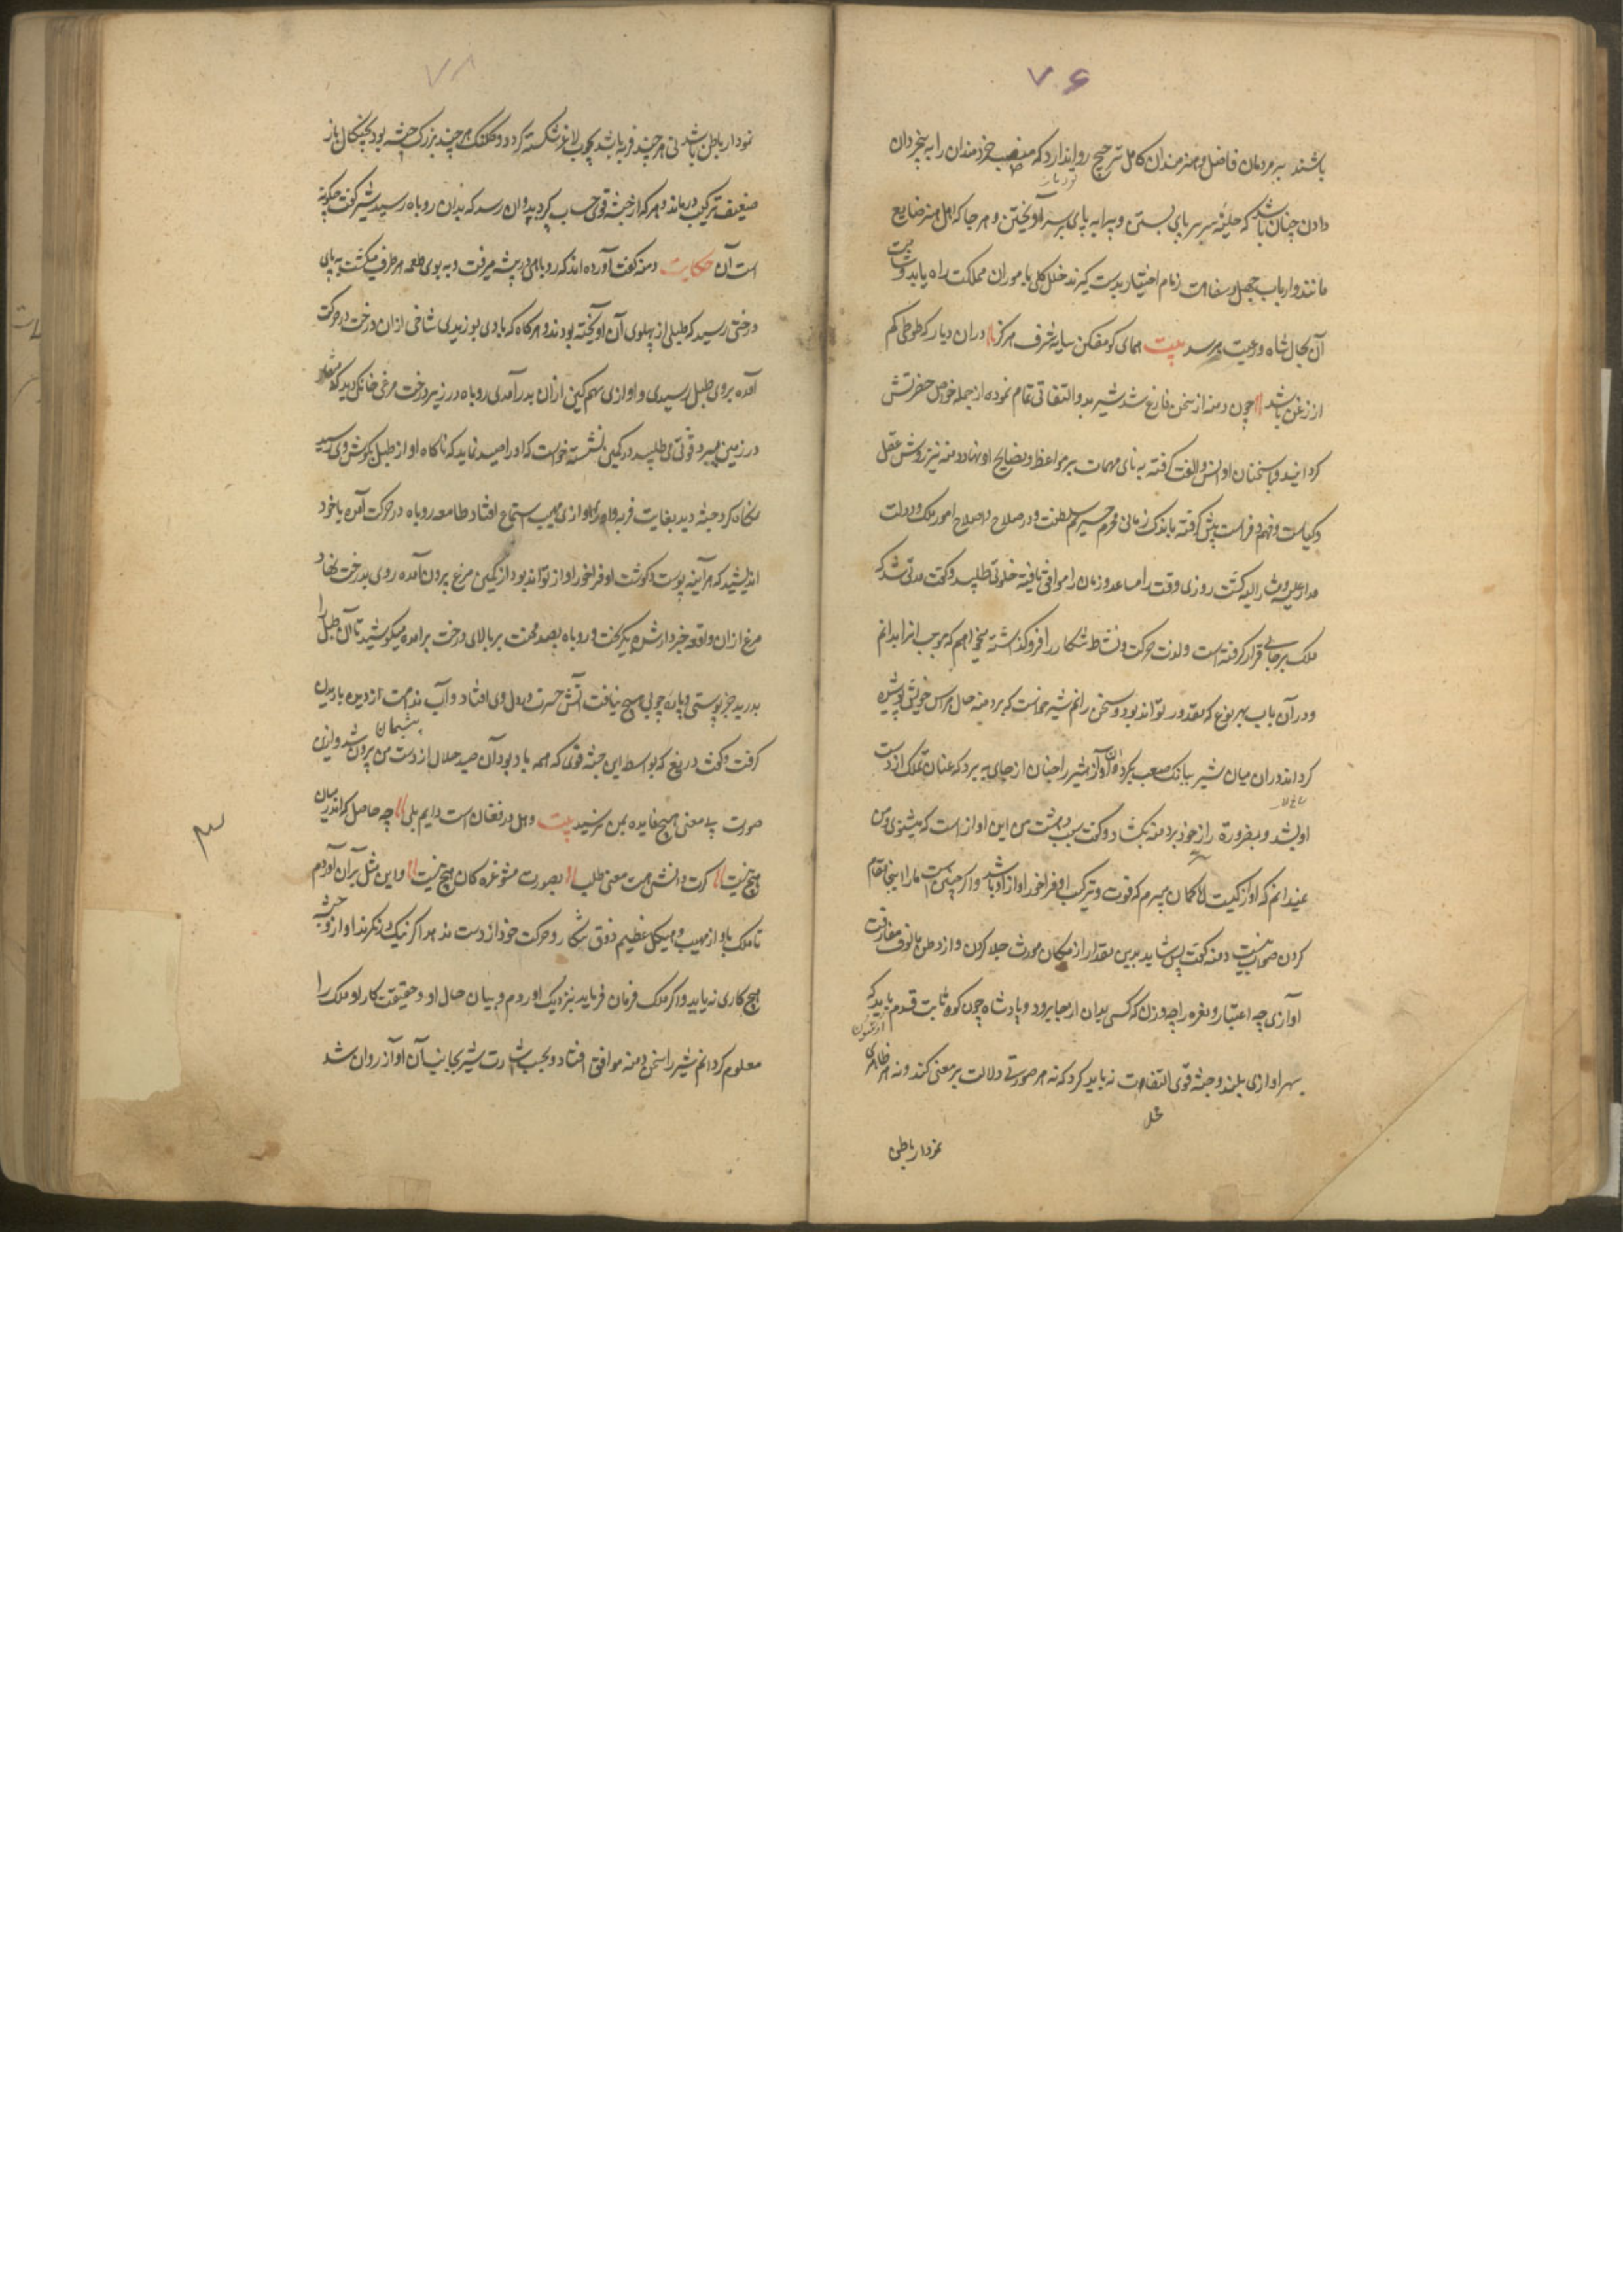 ۷۶
باشند بر مردمان فاضل و هنرمندان کامل ترجیح روا ندارد که منصب خردمندان را به بیخردان
دادن چنان باشد که حلیهٔ سر بر پای بستن و پیرایه پای بر سر آویختن و هر جا که اهل هنر ضایع
مانند و ارباب جهل و سفاهت زمام اختیار بدست گیرند خلل کلی بامور آن مملکت راه یابد و شامت
آن بحال شاه و رعیت برسد بیت همای کو مفکن سایه شرف هرگز دران دیار که طوطی کم
از زغن باشد چون دمنه از سخن فارغ شد شیر بدو التفاتی تمام نموده از جمله خواص حضرتش
گردانید و با سخنان او انس و الفت گرفته بنای مهمات بر مواعظ و نصایح او نهاد و دمنه نیز روش عقل
و کیاست و فهم و فراست پیش گرفته باندک زمانی محرم حریم سلطنت و در صلاح و اصلاح امور ملک و دولت
مدار علیه و مشار الیه گشت روزی وقت را مساعد و زمان را موافق یافته خلوتی طلبید و گفت مدتی شد که
ملک بر جای قرار گرفته است و لذت حرکت و نشاط شکار را فرو گذاشته میخواهم که موجب انرا بدانم
و در آن باب بهر نوع که مقدور تواند بود سخن رانم شیر خواست که بر دمنه حال هراس خویش پوشیده
گرداند دران میان شنزبه بانک صعب بکرد و آن آواز شیر را چنان از جای ببرد که عنان تملک از دست
او بشد و بضرورة راز خود بر دمنه بگشاد و گفت سبب دهشت من این اواز است که میشنوی و من
نمیدانم که اواز کیست اما گمان میبرم که قوت و ترکیب او فراخور اواز او باشد و اگر چنین است ما را اینجا مقام
کردن صواب نیست دمنه گفت پس نشاید بدین مقدار از مکان موروث جلا کردن و از وطن مالوف مفارقت
آوازی چه اعتبار و نعره را چه وزن که کسی بدان از جا برود و پادشاه چون کوه ثابت قدم باید که
بهر اوازی بلند و جثه قوی التفات نباید کرد که نه هر صورتی دلالت بر معنی کند و نه هر ظاهری
نمودار باطن
۷۸
نمودار باطن باشد نی هر چند فربه باشد بچوب لاغر شکسته گردد و کلنک هر چند بزرک جثه بود بچنگال باز
ضعیف ترکیب درماند و هر که از جثه قوی حساب گیرد بدو آن رسد که بدان روباه رسید شیر گفت چگونه
است آن حکایت دمنه گفت آورده اند که روباهی در بیشه میرفت و به بوی طعمه هر طرف میگشت به پای
درختی رسید که طبلی از پهلوی آن آویخته بودند و هرگاه که بادی بوزیدی شاخی ازان درخت در حرکت
آمده بروی طبل رسیدی و اوازی سهمگین ازان بدر آمدی روباه در زیر درخت مرغ خانگی دید که منقار
در زمین میزد و قوتی می طلبید در کمین نشسته خواست که او را صید نماید که ناگاه اواز طبل بگوش وی رسید
نگاه کرد جثه دید بغایت فربه و اوازی مهیب استماع افتاد طامعه روباه در حرکت آمده با خود
اندیشید که هر آینه پوست و گوشت او فراخور اواز تواند بود از کمین مرغ بیرون آمده روی بدرخت نهاد
مرغ ازان واقعه خبردار شده بگریخت و روباه بصد محنت بر بالای درخت برآمده میکوشید تا آن طبل را
بدرید جز پوستی و پاره چوبی هیچ نیافت آتش حسرت در دل وی افتاد و آب ندامت از دیده باریدن
گرفت و گفت دریغ که بواسطه این جثه قوی که همه باد بود آن صید حلال از دست من بیرون شد و ازین
پشیمان
صورت بی معنی هیچ فایده بمن نرسید بیت دهل در فغان است دایم ولی چه حاصل که اندر میان
هیچ نیست گرت دانش هست معنی طلب بصورت مشو غره کان هیچ نیست و این مثل برآن آوردم
تا ملک باواز مهیب و هیکل عظیم ذوق شکار و حرکت خود از دست ندهد اگر نیک در نگرند از اواز و جثه
هیچ کاری نیاید و اگر ملک فرمان فرماید نزدیک او روم و بیان حال او و حقیقت کار او ملک را
معلوم گردانم شیر را سخن دمنه موافق افتاد و بحسب اشارت شیر بجانب آن آواز روان شد